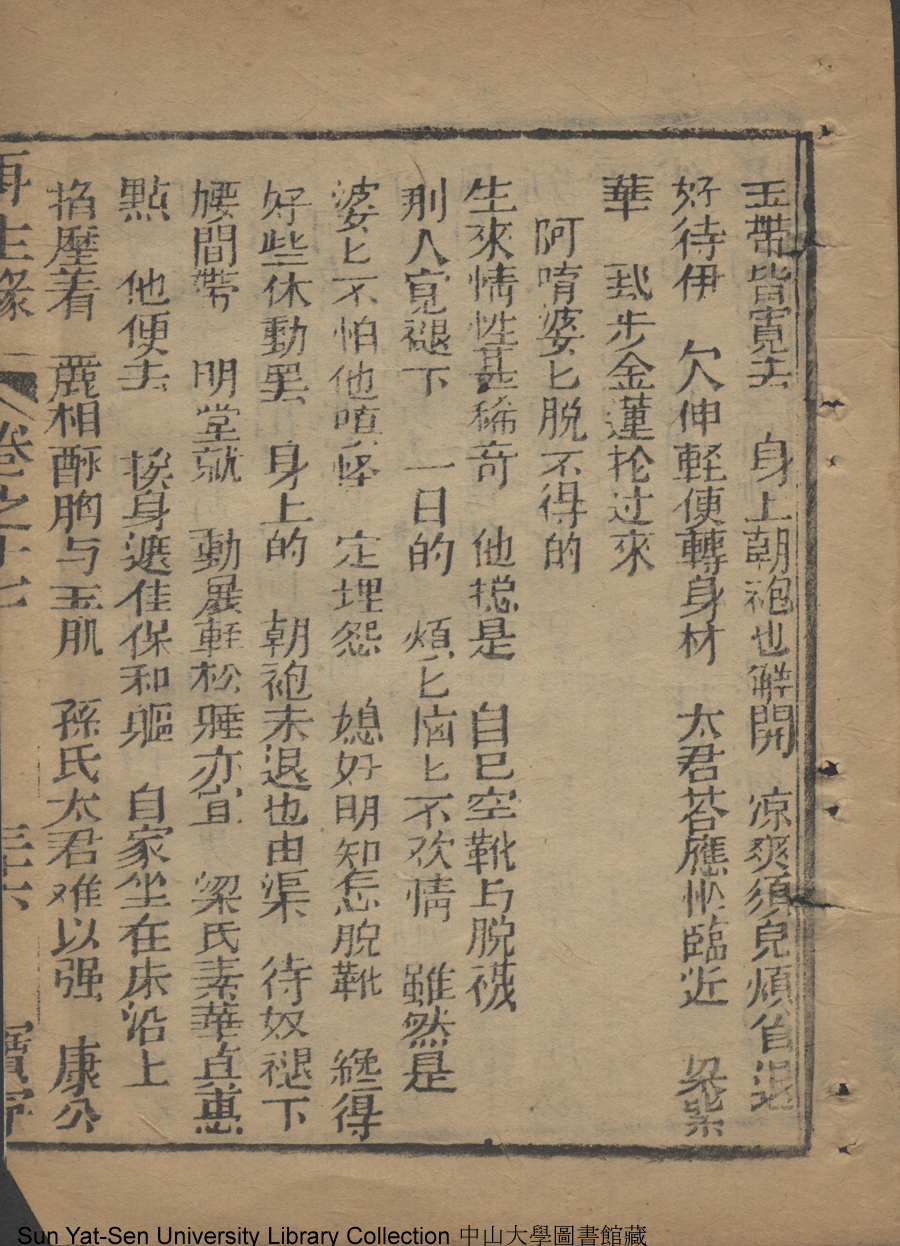 玉帶皆寬去 身上朝袍也解開 凉爽須兒煩省退
好待伊 欠伸軽便轉身材 太君荅應忙臨近 梁素
華 我步金蓮抡过來
阿唷婆匕脱不得的
生來情性甚稀奇 他揔是 自巳空靴与脱襪
別人寛褪下 一日的 煩匕恼匕不欢情 雖然是
婆匕不怕他嗔怪 定埋怨 媳好明知怎脱靴 纔得
好些休動罢 身上的 朝袍未退也由渠 待奴褪下
腰間帶 明堂就 動展軽松睡亦宜 梁氏素華真惠
點 他便去 挨身遮住保和軀 自家坐在床沿上
掐壓着 麄相酥胸与玉肌 孫氏太君难以强 康公
再生緣 卷之十七 三十六 寶宁